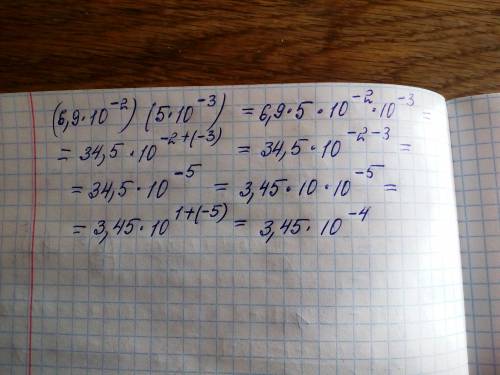 (6,9·10⁻²) (5·10⁻³) = 6,9·5·10⁻²·10⁻³ =
= 34,5·10⁻²⁺⁽⁻³⁾ = 34,5·10⁻²⁻³ =
= 34,5·10⁻⁵ = 3,45·10·10⁻⁵ =
= 3,45·10¹⁺⁽⁻⁵⁾ = 3,45·10⁻⁴